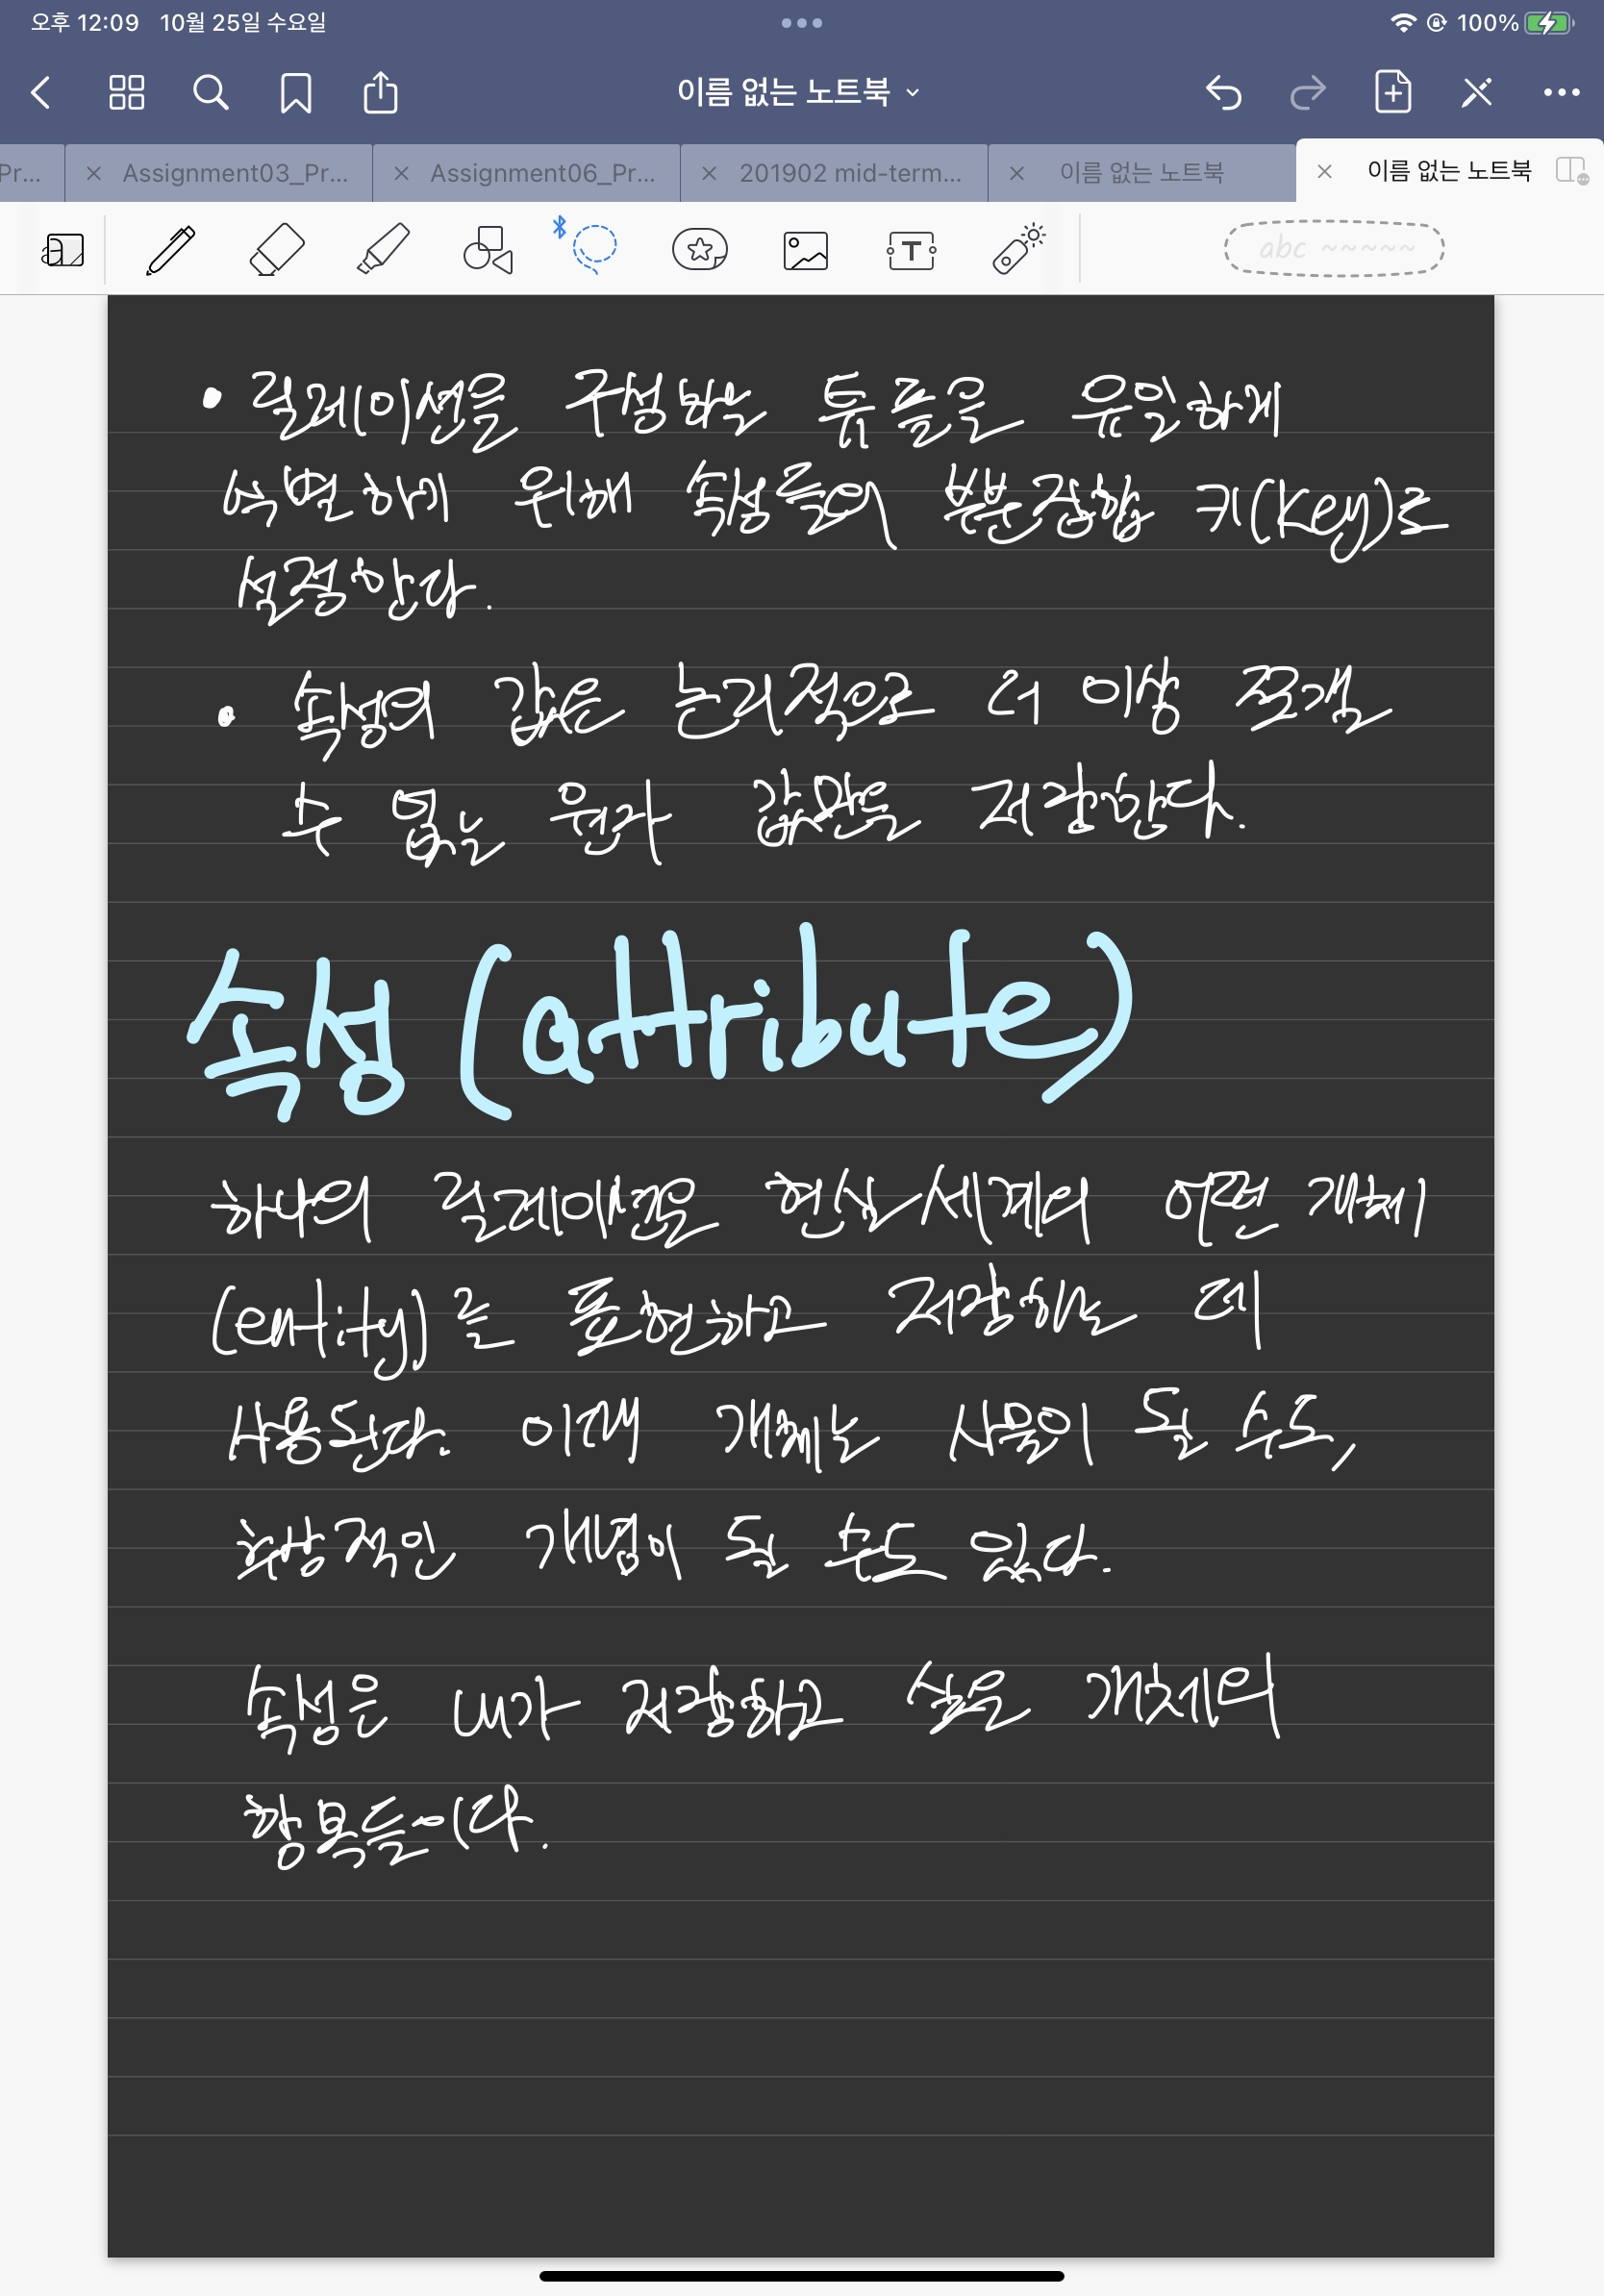 오후 12:09 10월 25일 수요일 100%
이름 없는 노트북
Pr... Assignment03_Pr... Assignment06_Pr... 201902 mid-term... 이름 없는 노트북 이름 없는 노트북
T abc ~~~~~
• 릴레이션을 구성하는 튜플을 유일하게
식별하기 위해 속성들의 부분집합 키(key)로
설정한다.
• 속성의 값은 논리적으로 더 이상 쪼갤
수 없는 원자 값만을 저장한다.
속성 (attribute)
하나의 릴레이션은 현실세계의 어떤 개체
(entity)를 표현하고 저장하는 데
사용된다. 이때 개체는 사물이 될 수도,
추상적인 개념이 될 수도 있다.
속성은 내가 저장하고 싶은 개체의
항목들이다.